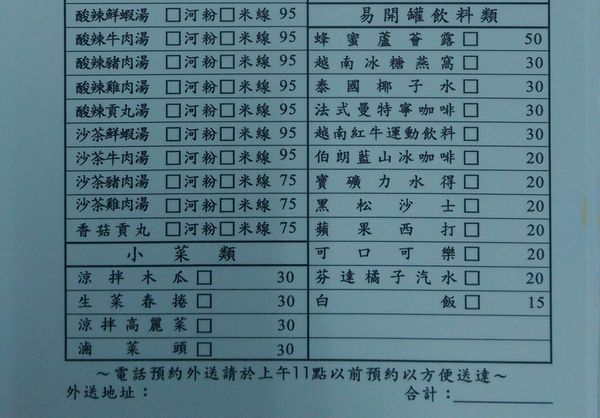 酸辣鮮蝦湯 □河粉□米線 95
酸辣牛肉湯 □河粉□米線 95
酸辣豬肉湯 □河粉□米線 95
酸辣雞肉湯 □河粉□米線 95
酸辣貢丸湯 □河粉□米線 95
沙茶鮮蝦湯 □河粉□米線 95
沙茶牛肉湯 □河粉□米線 95
沙茶豬肉湯 □河粉□米線 75
沙茶雞肉湯 □河粉□米線 75
香菇貢丸 □河粉□米線 75
小菜類
涼拌木瓜 □ 30
生菜春捲 □ 30
涼拌高麗菜 □ 30
滷菜頭 □ 30
易開罐飲料類
蜂蜜蘆薈露 □ 50
越南冰糖燕窩 □ 30
泰國椰子水 □ 30
法式曼特寧咖啡 □ 30
越南紅牛運動飲料 □ 30
伯朗藍山冰咖啡 □ 20
寶礦力水得 □ 20
黑松沙士 □ 20
蘋果西打 □ 20
可口可樂 □ 20
芬達橘子汽水 □ 20
白飯 □ 15
～電話預約外送請於上午11點以前預約以方便送達～
外送地址： 合計：